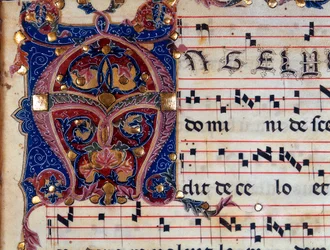 ANGELUS
domi ni de sce
dit de ce lo et